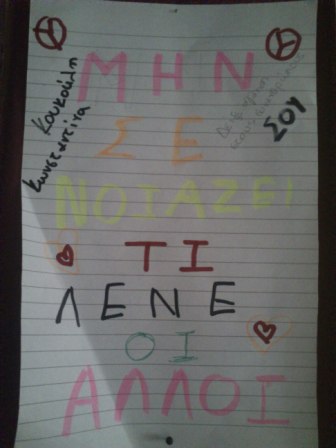 Κουκούλη
Κωνσταντίνα
ΣΟΥ
ΜΗΝ
ΣΕ
ΝΟΙΑΖΕΙ
ΤΙ
ΛΕΝΕ
ΟΙ
ΑΛΛΟΙ